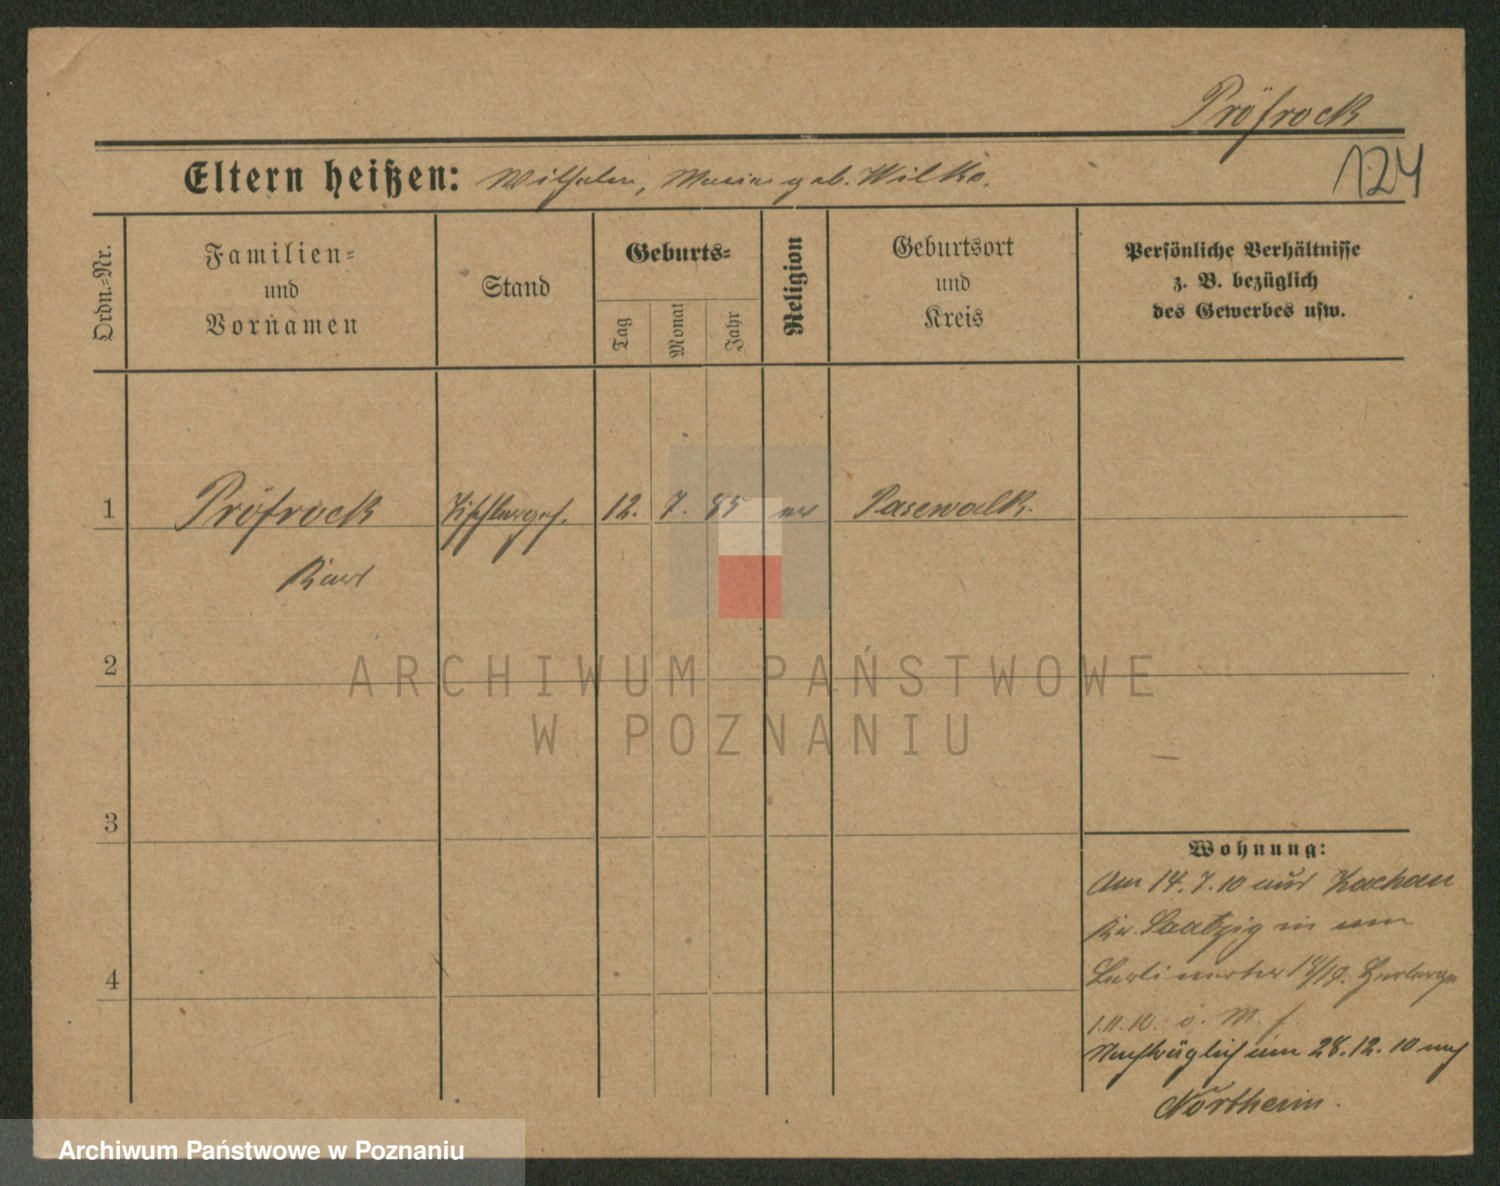 Pröfrock
124
Eltern heißen: Wilhelm, Marie geb. Wilke.
Ordn.-Nr.
Familien-
und
Vornamen
Stand
Geburts-
Tag
Monat
Jahr
Religion
Geburtsort
und
Kreis
Persönliche Verhältnisse
z. B. bezüglich
des Gewerbes usw.
1 Pröfrock Tischlerges. 12. 7. 85 ev Pasewalk.
Karl
2
3
4
Wohnung:
Am 14. 7. 10 aus Zachan
Kr. Saatzig in
Berlinerstr Herberge
1.11.10. o. M.
Nachträglich am 28.12.10 nach
Northeim.
ARCHIWUM PAŃSTWOWE
W POZNANIU
Archiwum Państwowe w Poznaniu